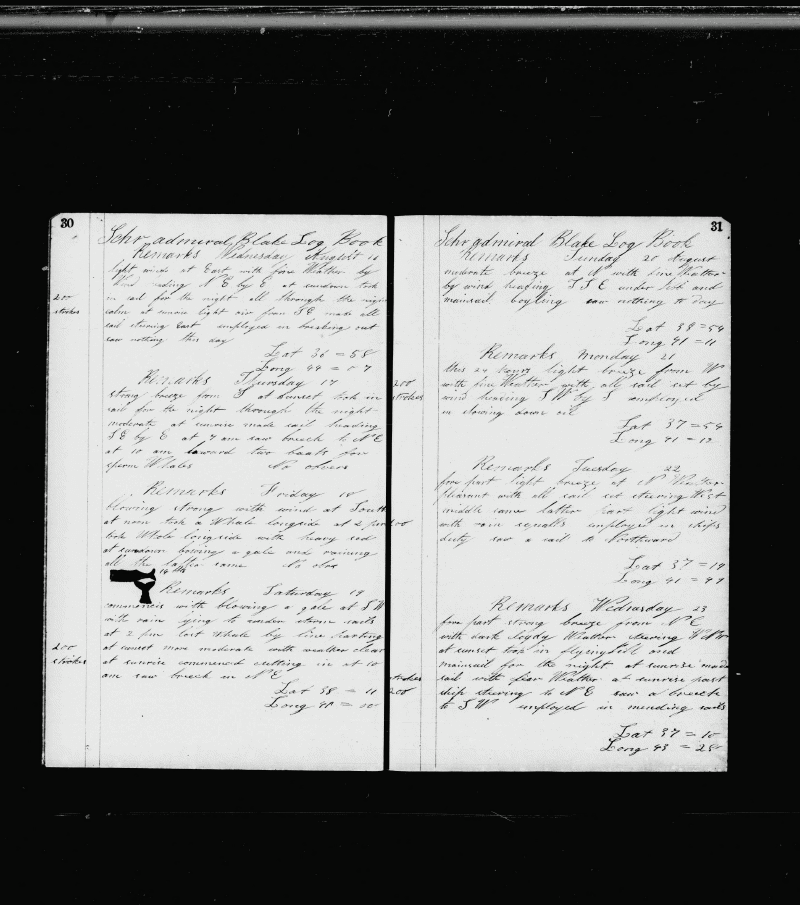 30
Schr admiral Blake Log Book
Remarks Wednesday August 16
light winds at East with fine Weather by
Wind heading N E by E at sundown took
in sail for the night all through the night
calm at sunrise light air from S E made all
sail steering East employed in breaking out
saw nothing this day
200
strokes
Lat 36 = 58
Long 44 = 07
Remarks Thursday 17
strong breeze from S at sunset took in
sail for the night through the night
moderate at sunrise made sail heading
S E by E at 7 am saw breech to N E
at 10 am lowerd two boats for
sperm Whales No obsers
Remarks Friday 18
blowing strong with wind at South
at noon took a Whale longside at 2 pm
took Whale longside with heavy sea
at sundown blowing a gale and raining
all the latter same No obs
Remarks Saturday 19
commences with blowing a gale at S W
with rain lying to under storm sails
at 2 pm lost whale by line parting
at sunset more moderate with weather clear
at sunrise commenced cutting in at 10
am saw breech in N E
200
strokes
Lat 38 = 11
Long 41 = 10
31
Schr admiral Blake Log Book
Remarks Sunday 20 August
moderate breeze at N with fine Weather
by wind heading S S E under Jib and
mainsail boyling saw nothing to day
Lat 38 = 54
Long 41 = 11
Remarks Monday 21
this 24 hours light breeze from W
with fine Weather with all sail set by
wind heading S W by S employed
in stowing down oil
200
strokes
Lat 37 = 54
Long 41 = 12
Remarks Tuesday 22
fore part light breeze at N Weather
pleasant with all sail set steering West
middle same latter part light wind
with rain squalls employed in ships
duty saw a sail to Northward
200
Lat 37 = 19
Long 41 = 47
Remarks Wednesday 23
fore part strong breeze from N E
with dark cloydy Weather steering
at sunset took in flying Jib and
mainsail for the night at sunrise made
sail with fear Weather at sunrise part
ship steering to N E saw a breech
to S W employed in mending sails
strokes
200
Lat 37 = 10
Long 43 = 25